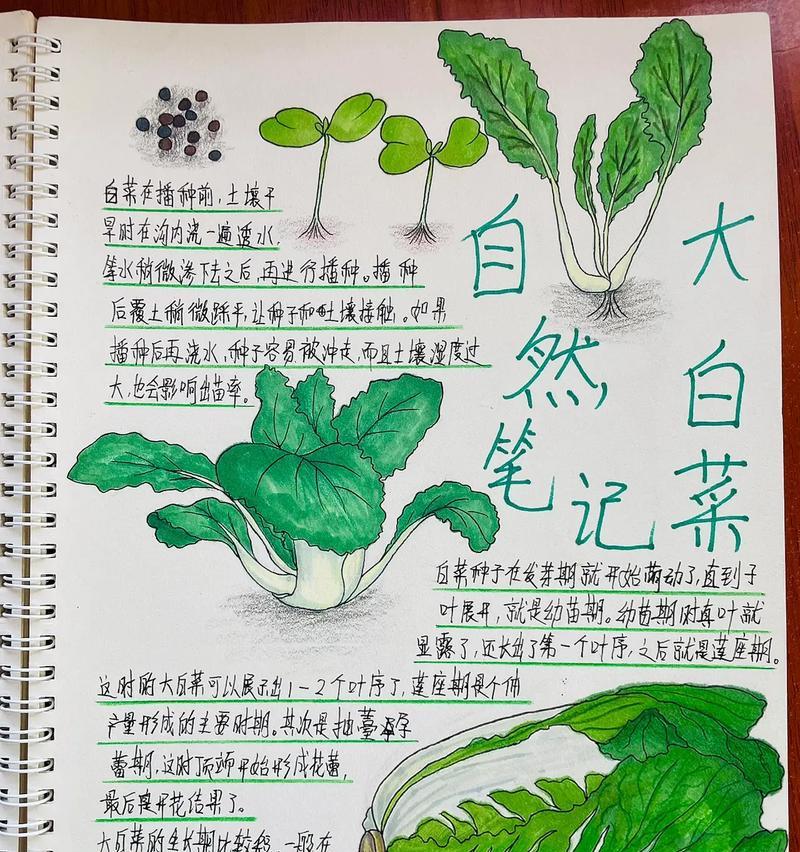 白菜在播种前，土壤干
旱时在沟内浇一遍透水，
等水稍微渗下去之后，再进行播种。播种
后覆土稍微踩平，让种子和土壤接触。如果
播种后再浇水，种子容易被冲走，而且土壤湿度过
大，也会影响出苗率。
自然笔记
大白菜
白菜种子在发芽期就开始萌动了，直到子
叶展开，就是幼苗期。幼苗期时真叶就
显露了，还长出了第一个叶序，之后就是莲座期。
这时的大白菜可以展示出1-2个叶序了，莲座期是个体
产量形成的主要时期。其次是抽薹孕
蕾期，这时顶端开始形成花蕾，
最后是开花结果了。
大白菜的生长期比较短，一般在